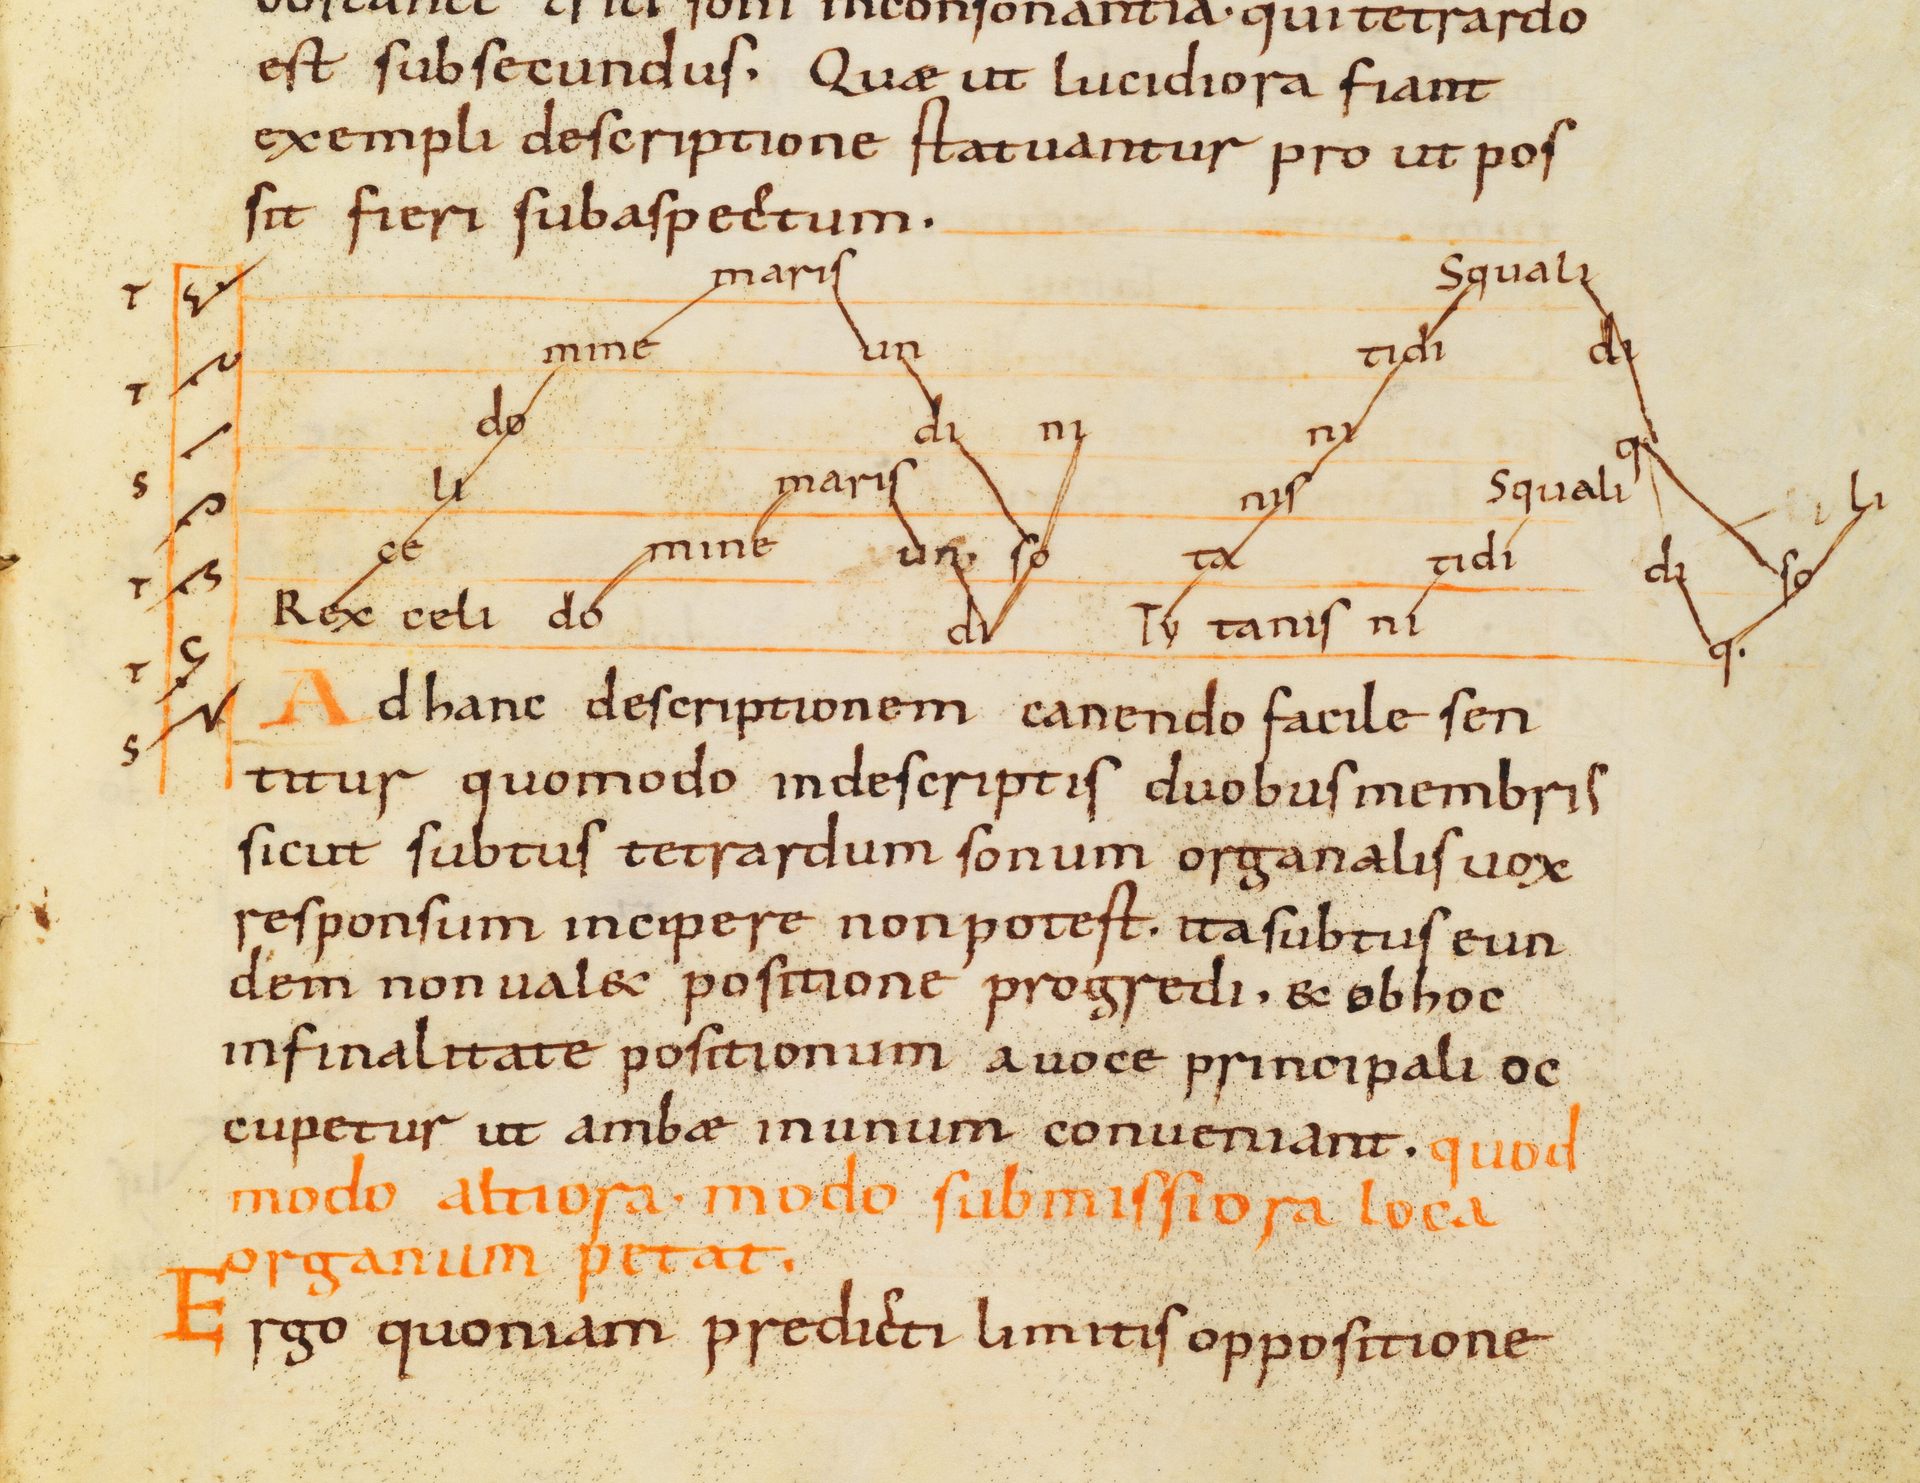 inconsonantia. qui tetrardo
est subsecundus. Quæ ut lucidiora fiant
exempli descriptione statuantur pro ut pos
sit fieri sub aspectum.
T maris Squali
T mine un tidi di
do di ni ni q
S li maris nis Squali li
T ce mine un. so ta tidi di so
T Rex celi do di Ty tanis ni q.
S
Ad hanc descriptionem canendo facile sen
titur quomodo in descriptis duobus membris
sicut subtus tetrardum sonum organalis uox
responsum incipere non potest. ita subtus eun
dem non ual& positione progredi, & ob hoc
in finalitate positionum a uoce principali oc
cupetur ut ambæ in unum conueniant. quod
modo altiora. modo submissiora loca
organum petat.
Ergo quoniam predicti limitis oppositione